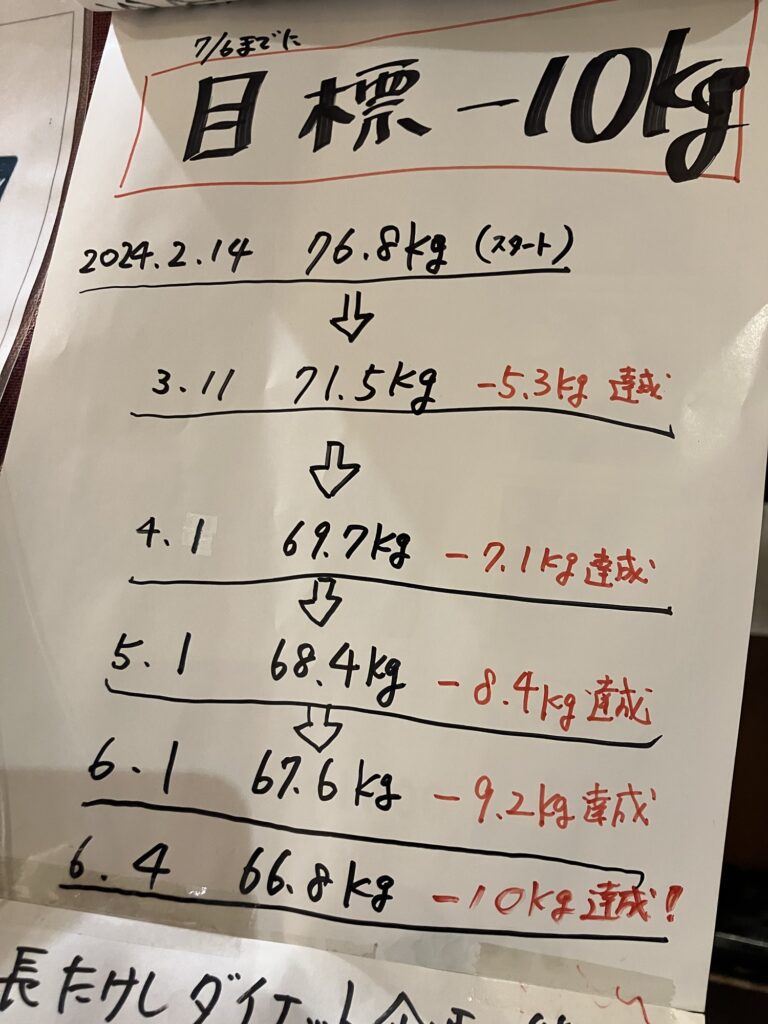 7/6までに
目標 -10kg
2024.2.14 76.8kg (スタート)
3.11 71.5kg -5.3kg 達成
4.1 69.7kg -7.1kg 達成
5.1 68.4kg -8.4kg 達成
6.1 67.6kg -9.2kg 達成
6.4 66.8kg -10kg 達成!
長たけしダイエット企画